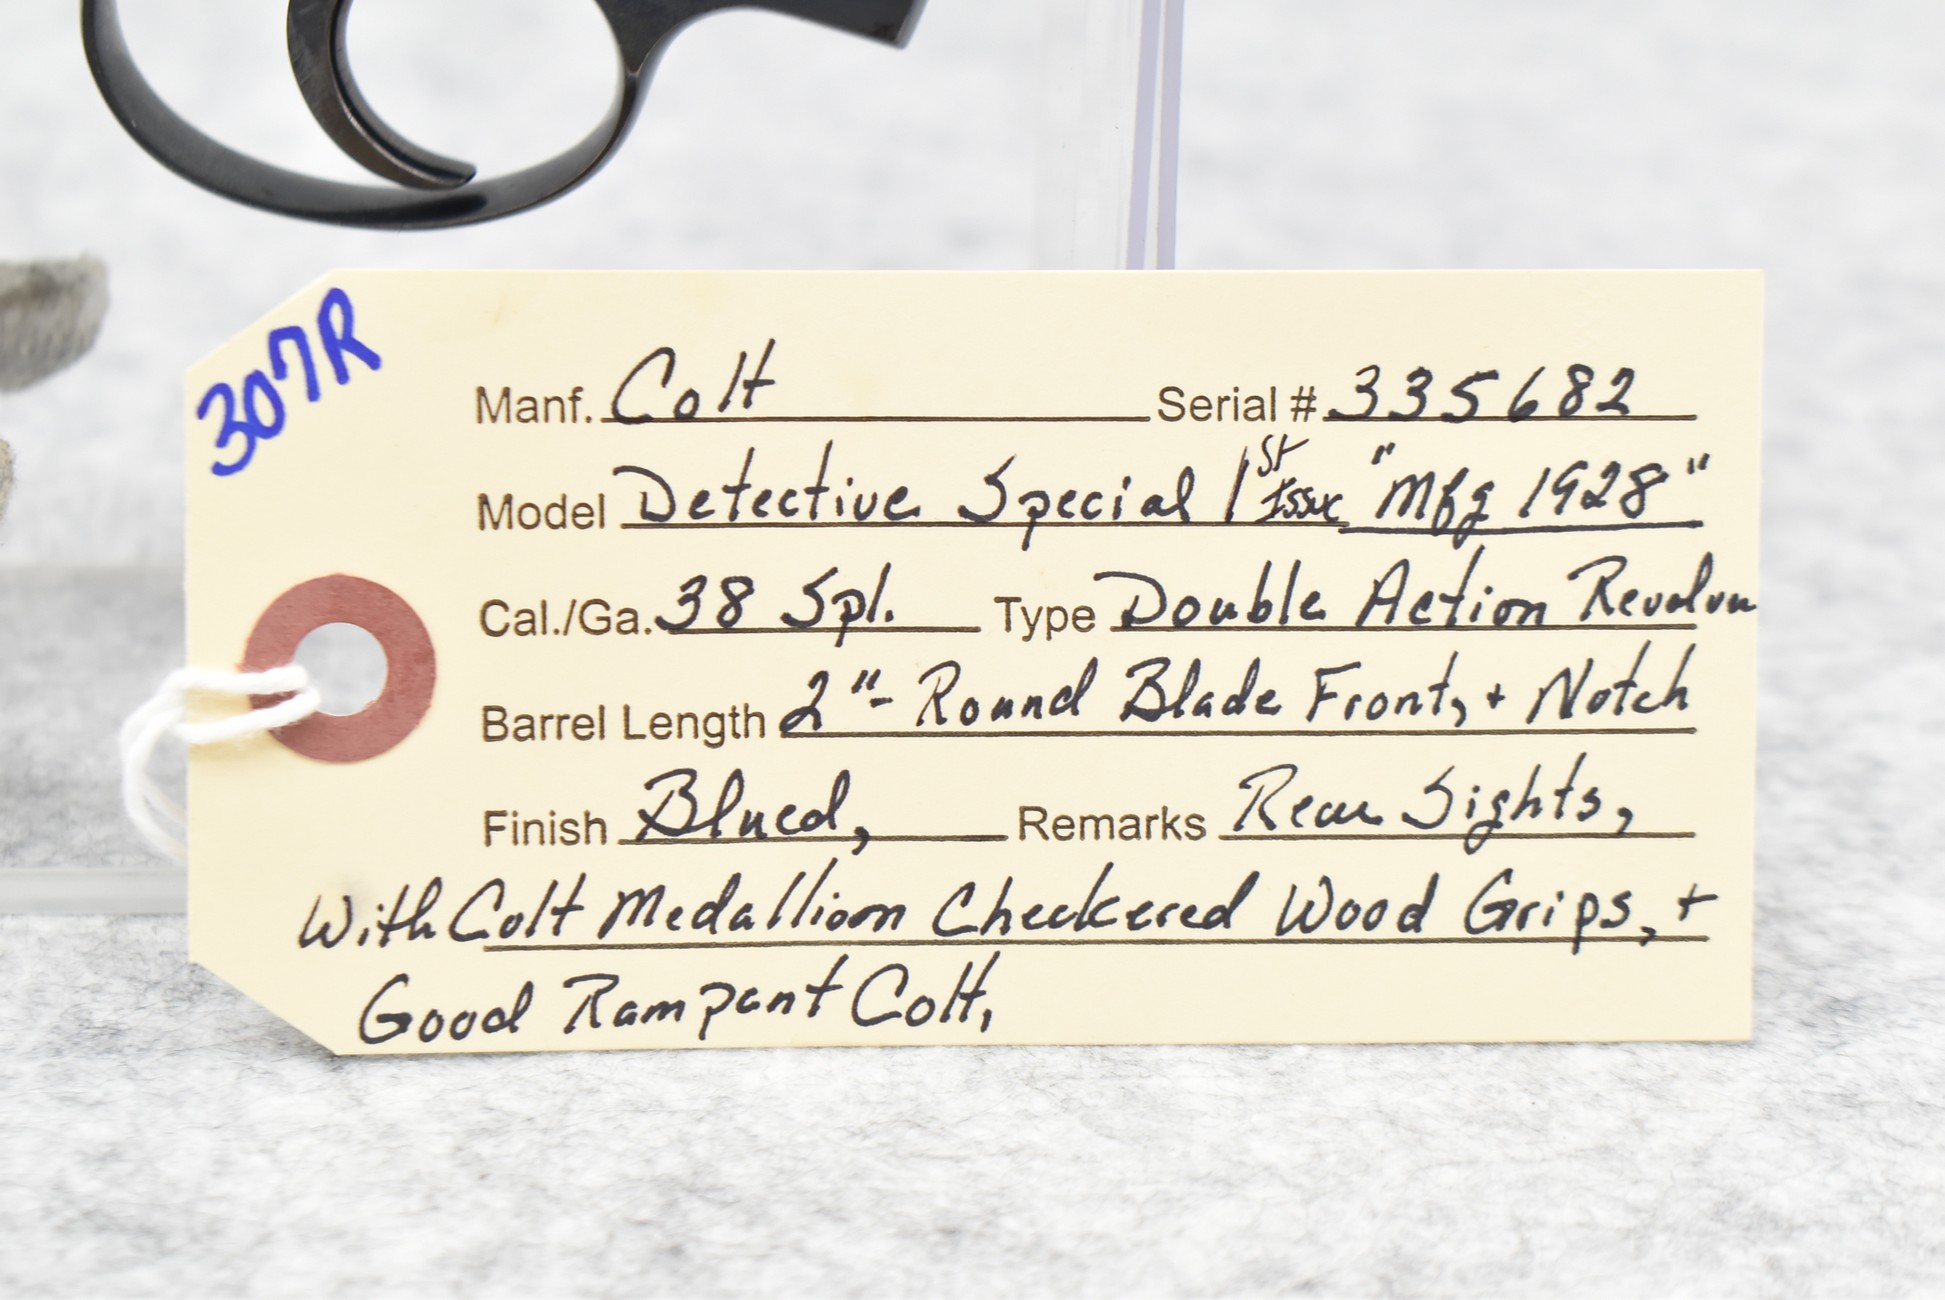 307R
Manf. Colt Serial # 335682
Model Detective Special 1st Issue "Mfg 1928"
Cal./Ga. 38 Spl. Type Double Action Revolver
Barrel Length 2"- Round Blade Front, + Notch
Finish Blued, Remarks Rear Sights,
With Colt Medallion Checkered Wood Grips, +
Good Rampant Colt,